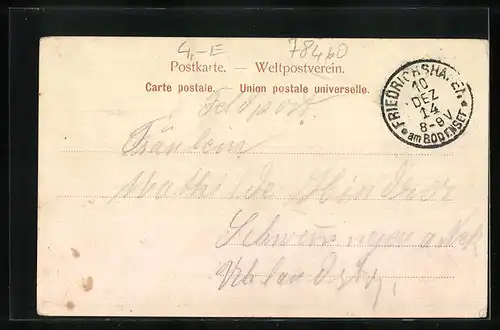 4,-E 78460
Postkarte. — Weltpostverein.
Carte postale. Union postale universelle.
FRIEDRICHSHAFEN
10
DEZ
14
8-9V
am BODENSEE
Feldpost
Fräulein
Mathilde
Schwenningen a Nek